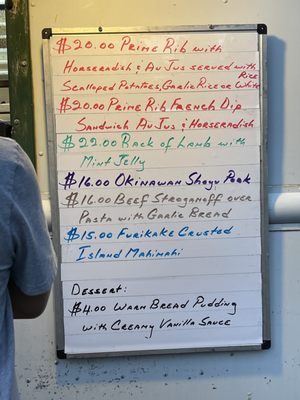 $20.00 Prime Rib with
Horseradish & Au Jus served with
Rice
Scalloped Potatoes, Garlic Rice or White
$20.00 Prime Rib French Dip
Sandwich Au Jus & Horseradish
$22.00 Rack of Lamb with
Mint Jelly
$16.00 Okinawan Shoyu Pork
$16.00 Beef Stroganoff over
Pasta with Garlic Bread
$15.00 Furikake Crusted
Island Mahimahi
Dessert:
$4.00 Warm Bread Pudding
with Creamy Vanilla Sauce